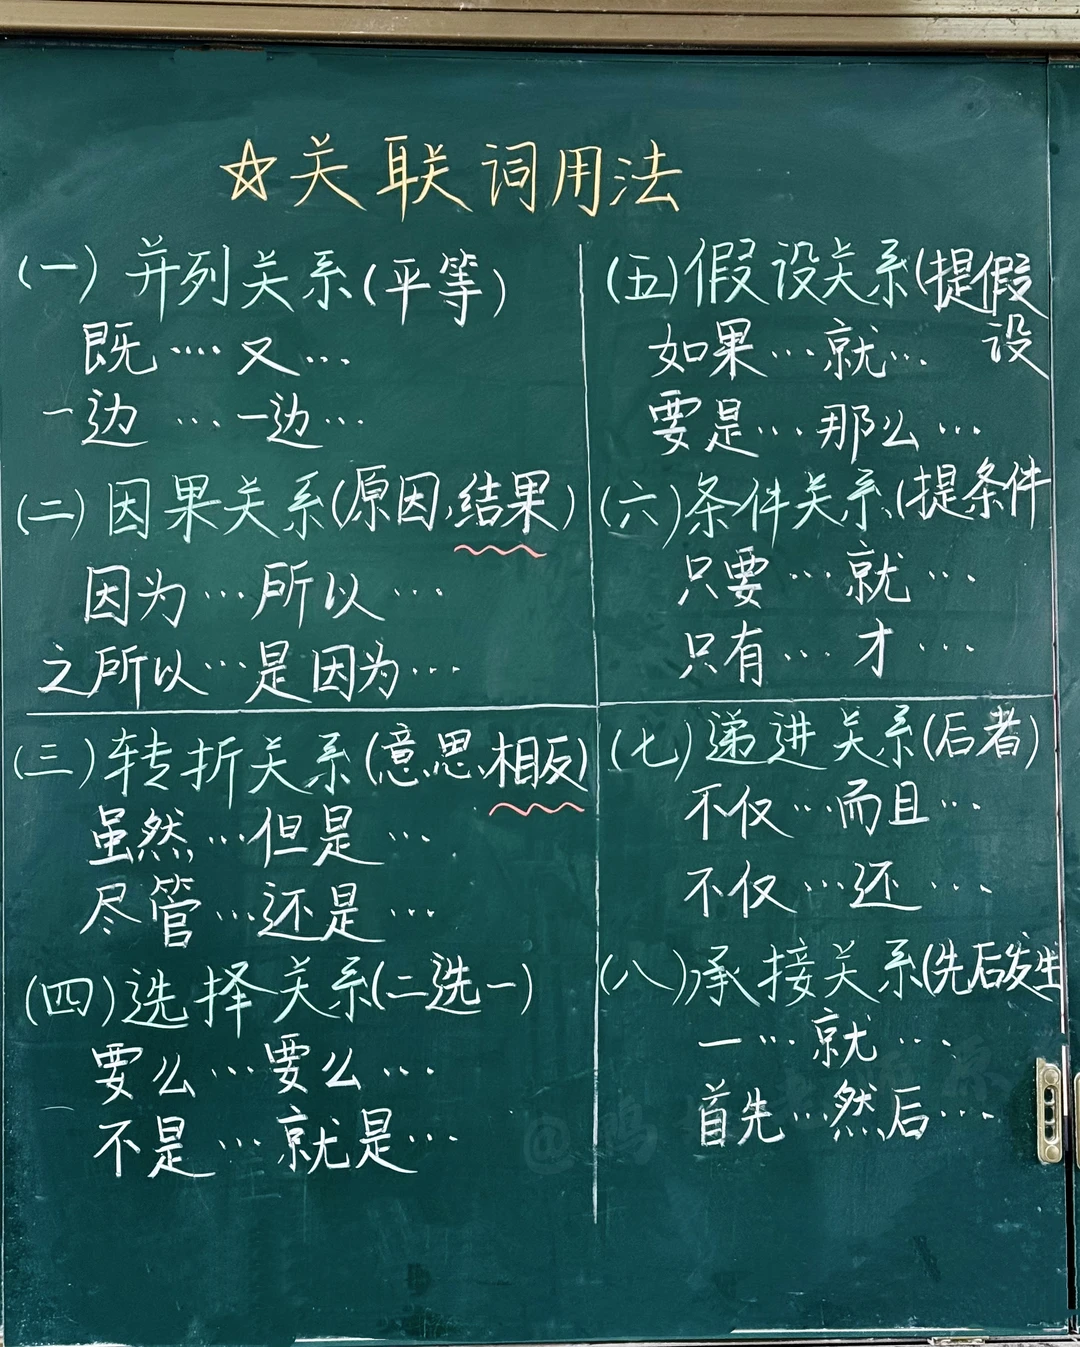 ☆关联词用法
(一)并列关系(平等)
既····又···
一边···一边···
(二)因果关系(原因,结果)
因为···所以···
之所以···是因为···
(三)转折关系(意思相反)
虽然···但是···
尽管···还是···
(四)选择关系(二选一)
要么···要么···
不是···就是···
(五)假设关系(提假
设
如果···就···
要是···那么···
(六)条件关系(提条件
只要···就···
只有···才···
(七)递进关系(后者)
不仅···而且···
不仅···还···
(八)承接关系(先后发生
一···就···
首先···然后···